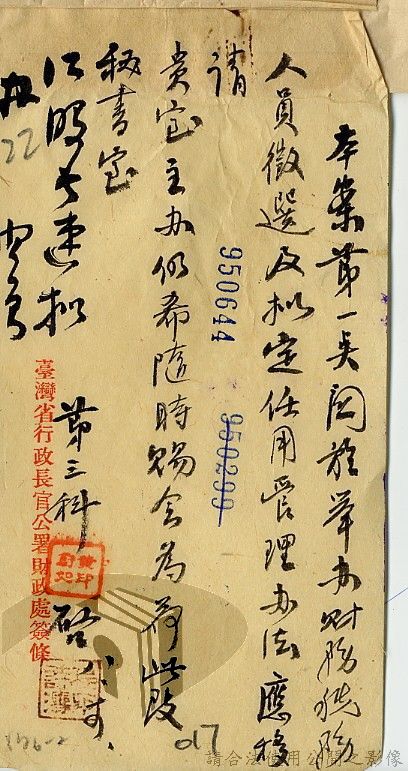 本案第一点関於举办财務税務
人員徵選及拟定任用管理办法應移
請
貴室主办仍希隨時賜会為荷此致
秘書室
第三科 啓
速拟
臺灣省行政長官公署財政處簽條
950644
950299
22
017
176-2
請合法使用公開之影像